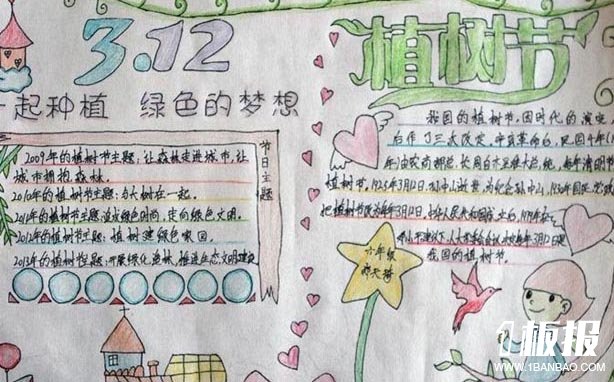 3.12
一起种植 绿色的梦想
节日主题
2009年的植树节主题:让森林走进城市,让
城市拥抱森林。
2010年的植树节主题:与长树在一起。
2011年的植树节主题:追求绿色时尚,走向绿色文明。
2012年的植树节主题:植树造绿色家园。
2013年的植树节主题:开展绿化 推进生态文明建设
植树节
我国的植树节,因时代的演变
后作了三次改定,辛亥革命后,民国
年,由农商部总长周自齐呈准大总统,每年清明节
植树节。1925年3月12日,孙中山逝世,为纪念孙中山,
把植树节改为每年3月12日,中华人民共和国成立后,1979年在
人大常委会决定每年3月12日是
我国的植树节。
六年级
1板报
WWW.1BANBAO.COM